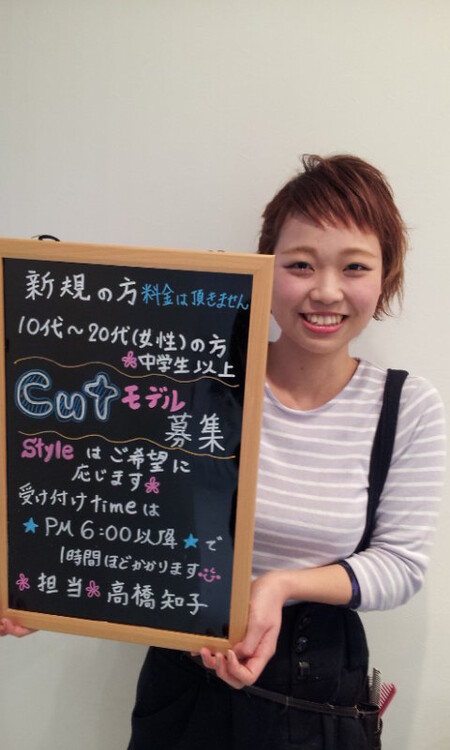 新規の方 料金は頂きません
10代～20代(女性)の方
中学生以上
Cutモデル
募集
Styleはご希望に
応じます
受け付けtimeは
★PM 6:00以降★で
1時間ほどかかります
担当 高橋知子